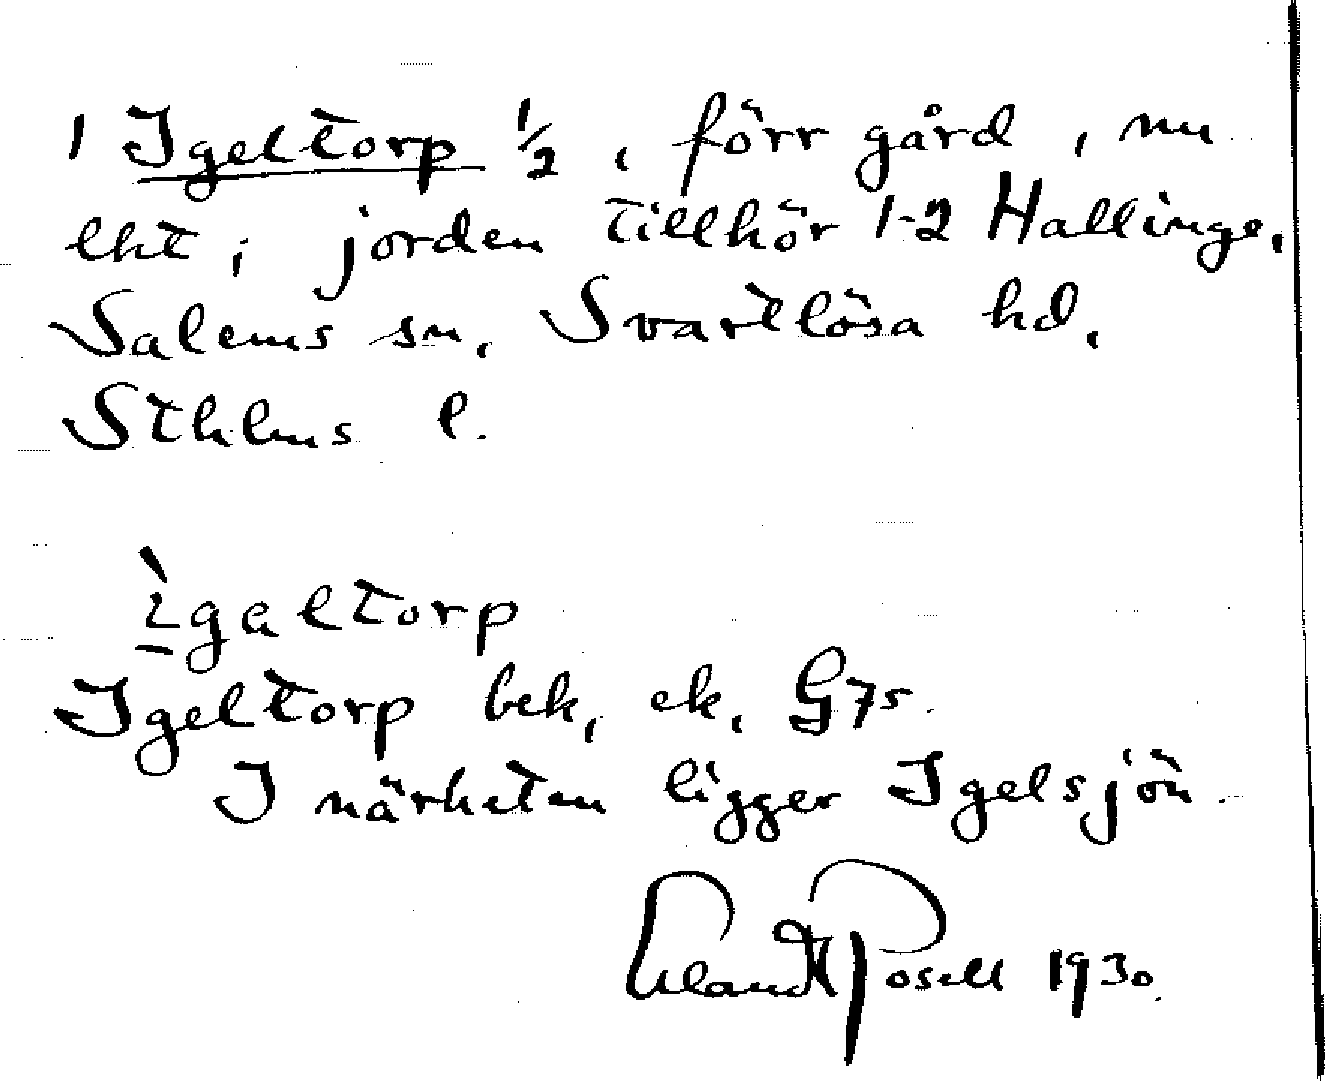 1 Igeltorp 1/2, förr gård, nu
lht; jorden tillhör 1-2 Hallinge,
Salems sn, Svartlösa hd,
Sthlms l.
ìgaltorp
Igeltorp bek, ek, G7s.
I närheten ligger Igelsjön.
Erland Rosell 1930.